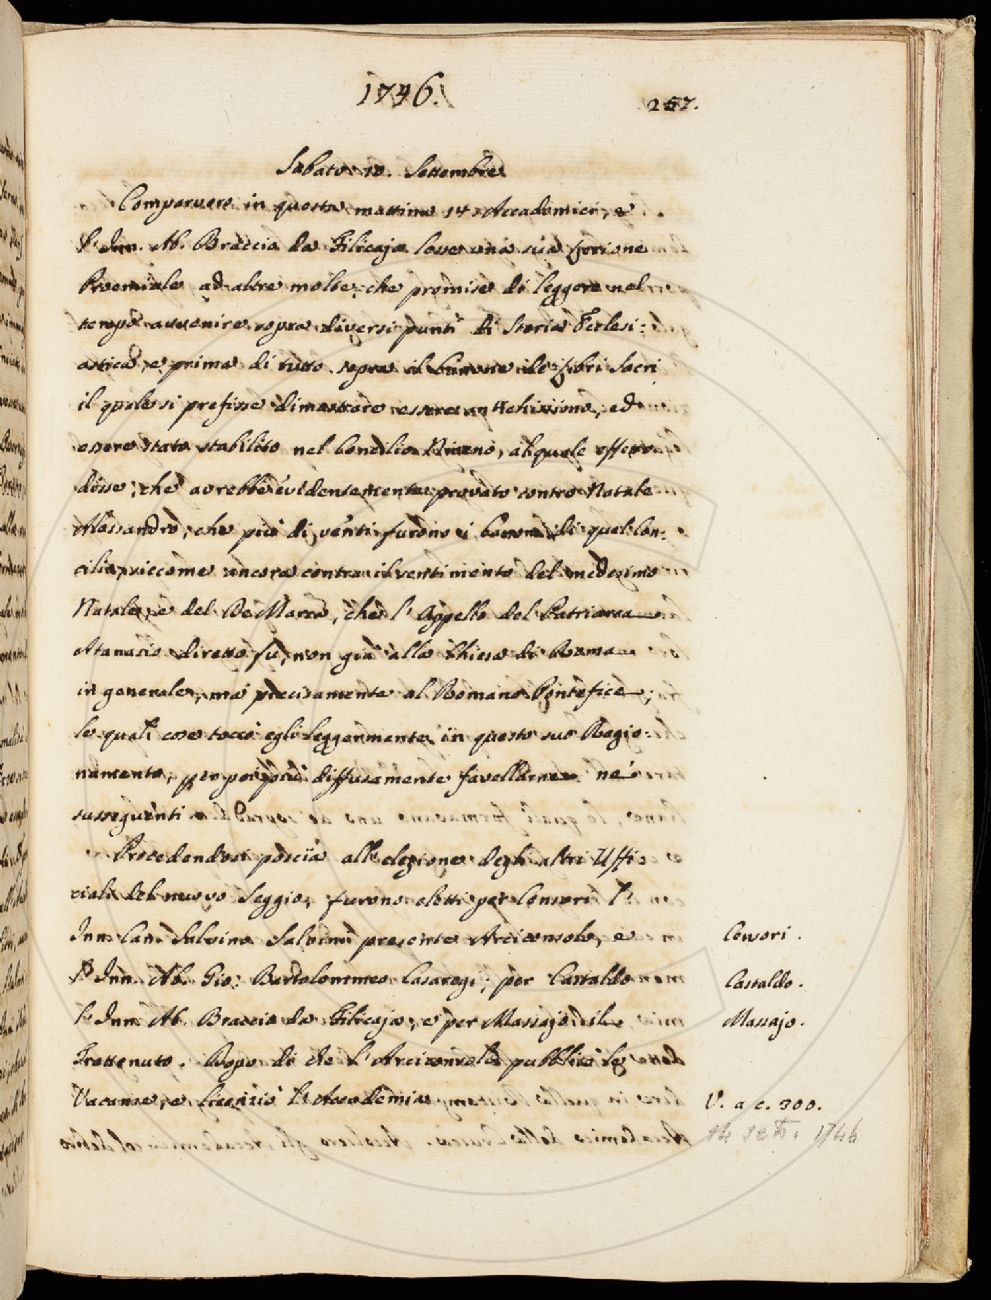 1746.
257.
Sabato 10. Settembre
Comparvero in questa mattina 14 Accademici, e
l'Inn. Ab. Braccio da Filicaja lesse una sua Lezione
Proemiale ad altre molte, che promise di leggere nel
tempo avvenire sopra diversi punti di Storia Ecclesi=
astica, e prima di tutto sopra il Canone de libri Sacri
il quale si prefisse dimostrare essere antichissimo, ed
essere stato stabilito nel Concilio Niceno, al quale effetto
disse, che avrebbe evidentemente provato contro Natale
Alessandro, che più di venti furono i Canoni di quel Con=
cilio, siccome ancora contra il sentimento del medesimo
Natale, e del De Marca, che l'Appello del Patriarca
Atanasio diretto fu, non già alla Chiesa di Roma
in generale, ma precisamente al Romano Pontefice;
le quali cose toccò egli leggermente in questo suo Ragio=
namento, per poi più diffusamente favellarne ne'
susseguenti.
Procedendosi poscia all'elezione degli altri Uffi=
ziali del nuovo Seggio, furono eletti per Censori l'
Inn. Can. Salvino Salvini presente Arciconsolo, e
l'Inn. Ab. Gio: Bartolommeo Casaregi; per Castaldo
l'Inn. Ab. Braccio da Filicaja, e per Massajo il
Trattenuto. Dopo di che l'Arciconsolo pubblicò le
Vacanze, e licenziò l'Accademia.
Censori.
Castaldo.
Massajo.
V. a c. 300.
14 sett. 1746